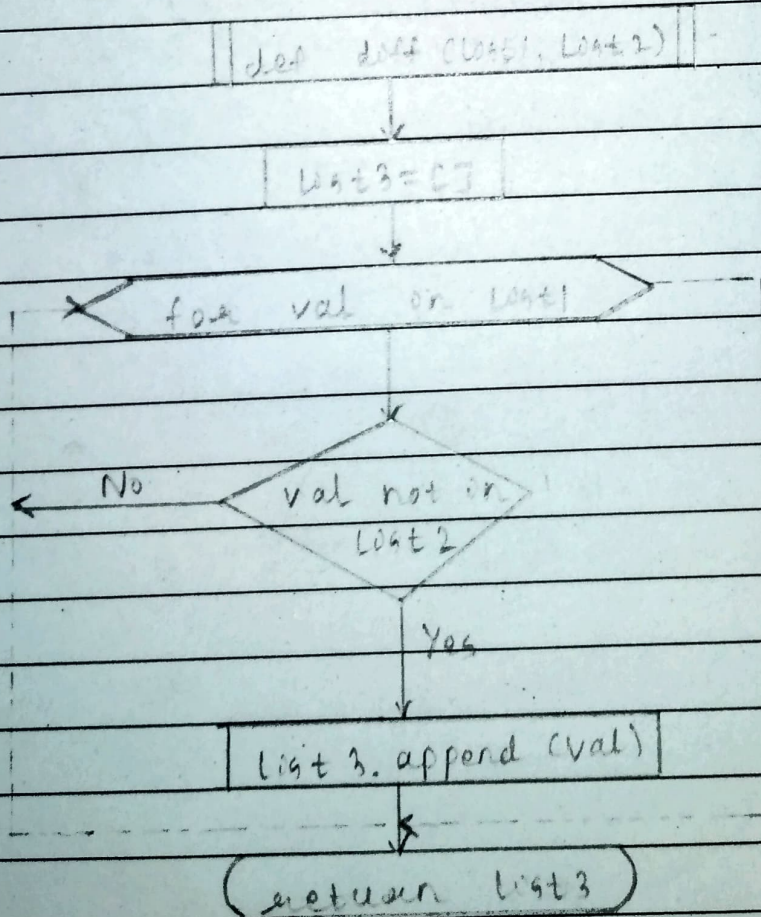 def diff (list1, list2)
list3 = []
for val in list1
val not in
list2
No
Yes
list3.append (val)
return list3